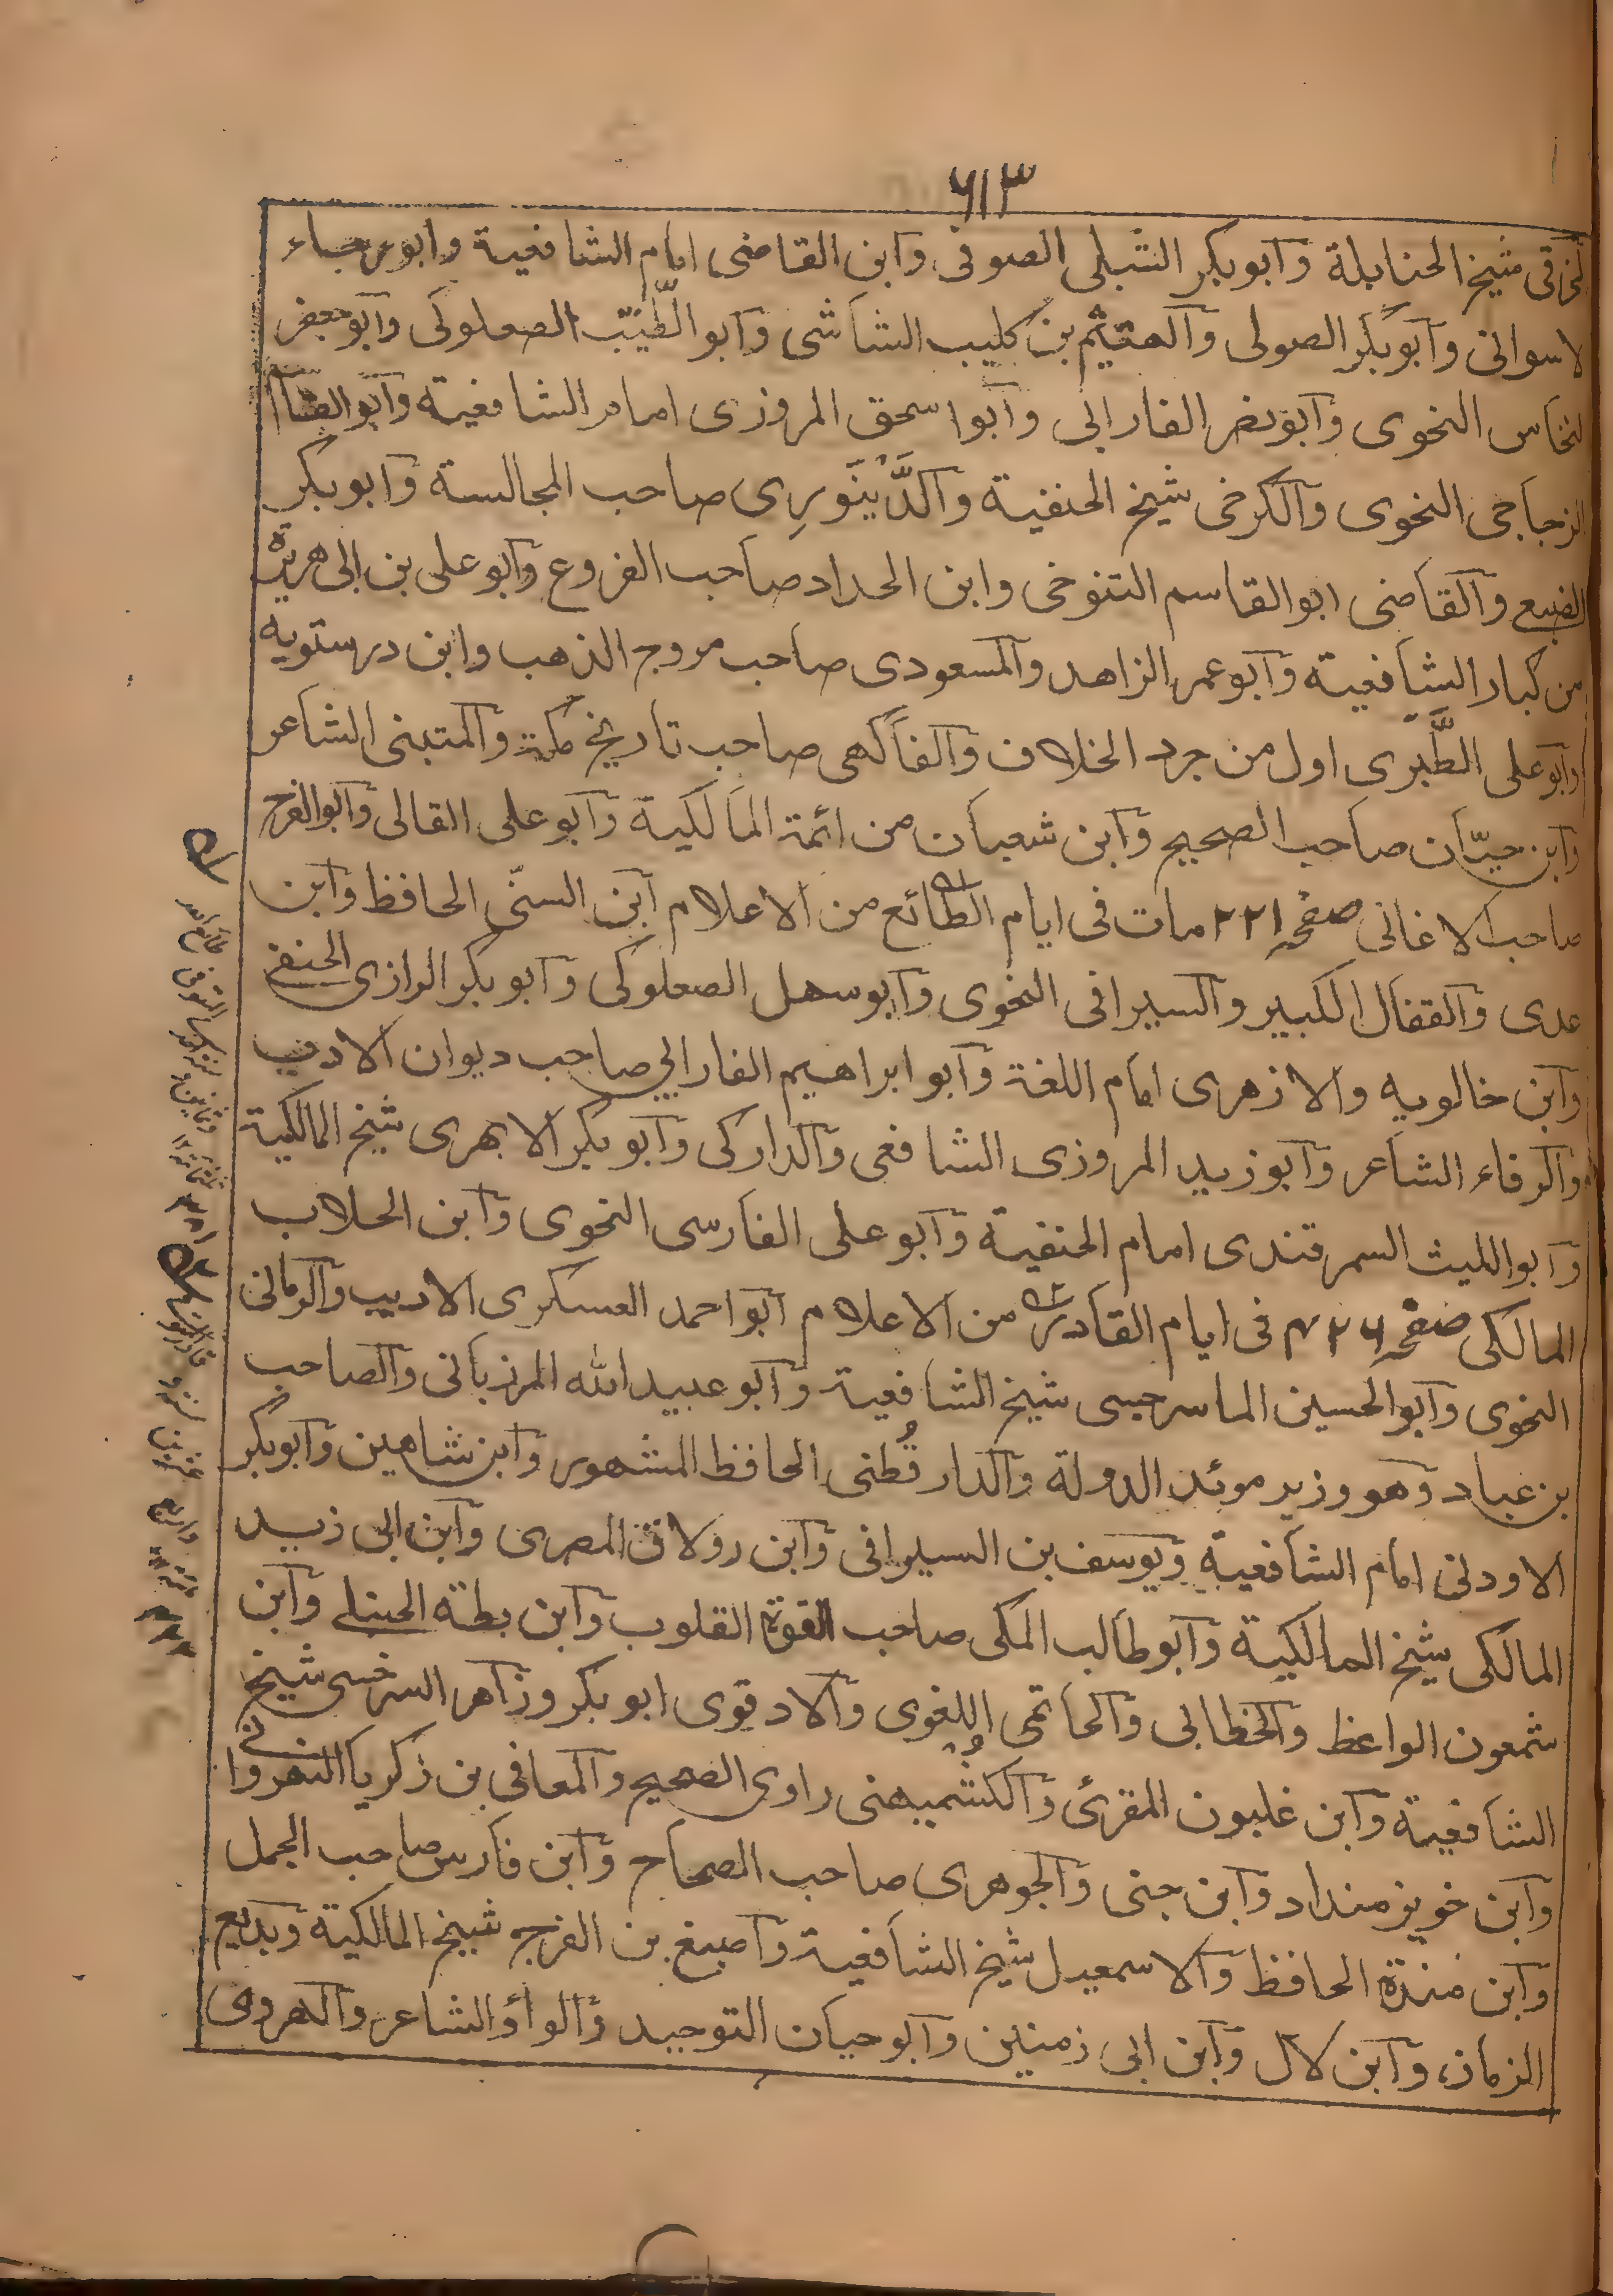 ٦١٣
لخرقی شیخ الحنابلة وابوبکر الشبلی الصوفی وابن القاضی امام الشافعیة وابو رجاء
لاسوانی وابوبکر الصولی والهیثم بن کلیب الشاشی وابو الطَّیِّب الصعلوکی وابوجعفر
لنحاس النحوی وابونصر الفارابی وابو اسحق المروزی امام الشافعیة وابوالقاسم
الزجاجی النحوی والکرخی شیخ الحنفیة والدَّیْنَوَرِی صاحب المجالسة وابوبکر
الضبع والقاضی ابوالقاسم التنوخی وابن الحداد صاحب الفروع وابوعلی بن ابی هریرة
من کبار الشافعیة وابوعمر الزاهد والمسعودی صاحب مروج الذهب وابن درستویه
وابوعلی الطَّبری اول من جرد الخلاف والفاکهی صاحب تاریخ مکة والمتبنی الشاعر
وابن حبّان صاحب الصحیح وابن شعبان من ائمة المالکیة وابوعلی القالی وابوالفرج
صاحب الاغانی صفحہ ۲۲۱ مات فی ایام الطائع من الاعلام ابن السنّی الحافظ وابن
عدی والقفال الکبیر والسیرافی النحوی وابوسهل الصعلوکی وابوبکر الرازی الحنفی
وابن خالویه والازهری امام اللغة وابوابراهیم الفارابی صاحب دیوان الادب
والرفاء الشاعر وابوزید المروزی الشافعی والدارکی وابوبکر الابهری شیخ المالکیة
وابواللیث السمرقندی امام الحنفیة وابوعلی الفارسی النحوی وابن الجلاب
المالکی صفحہ ۴۲۶ م فی ایام القادر من الاعلام ابواحمد العسکری الادیب والرمانی
النحوی وابوالحسین الماسرجسی شیخ الشافعیة وابوعبیدالله المرزبانی والصاحب
بن عباد وهو وزیر موئد الدولة والدارقُطنی الحافظ المشهور وابن شاهین وابوبکر
الاودنی امام الشافعیة ویوسف بن السیرافی وابن رولاق المصری وابن ابی زید
المالکی شیخ المالکیة وابوطالب المکی صاحب القوة القلوب وابن بطة الحنبلے وابن
شمعون الواعظ والخطابی والحاتمی اللغوی والادقوی ابوبکر وزاهر السرخسی شیخ
الشافعیة وابن غلبون المقرئ والکُشمیهنی راوی الصحیح والمعافی بن زکریا النهروانے
وابن خویزمنداد وابن جنی والجوهری صاحب الصحاح وابن فارس صاحب المجمل
وابن مندة الحافظ والاسمعیل شیخ الشافعیة واصبغ بن الفرج شیخ المالکیة وبدیع
الزمان وابن لال وابن ابی زمنین وابوحیان التوحید والوأو الشاعر والهروی